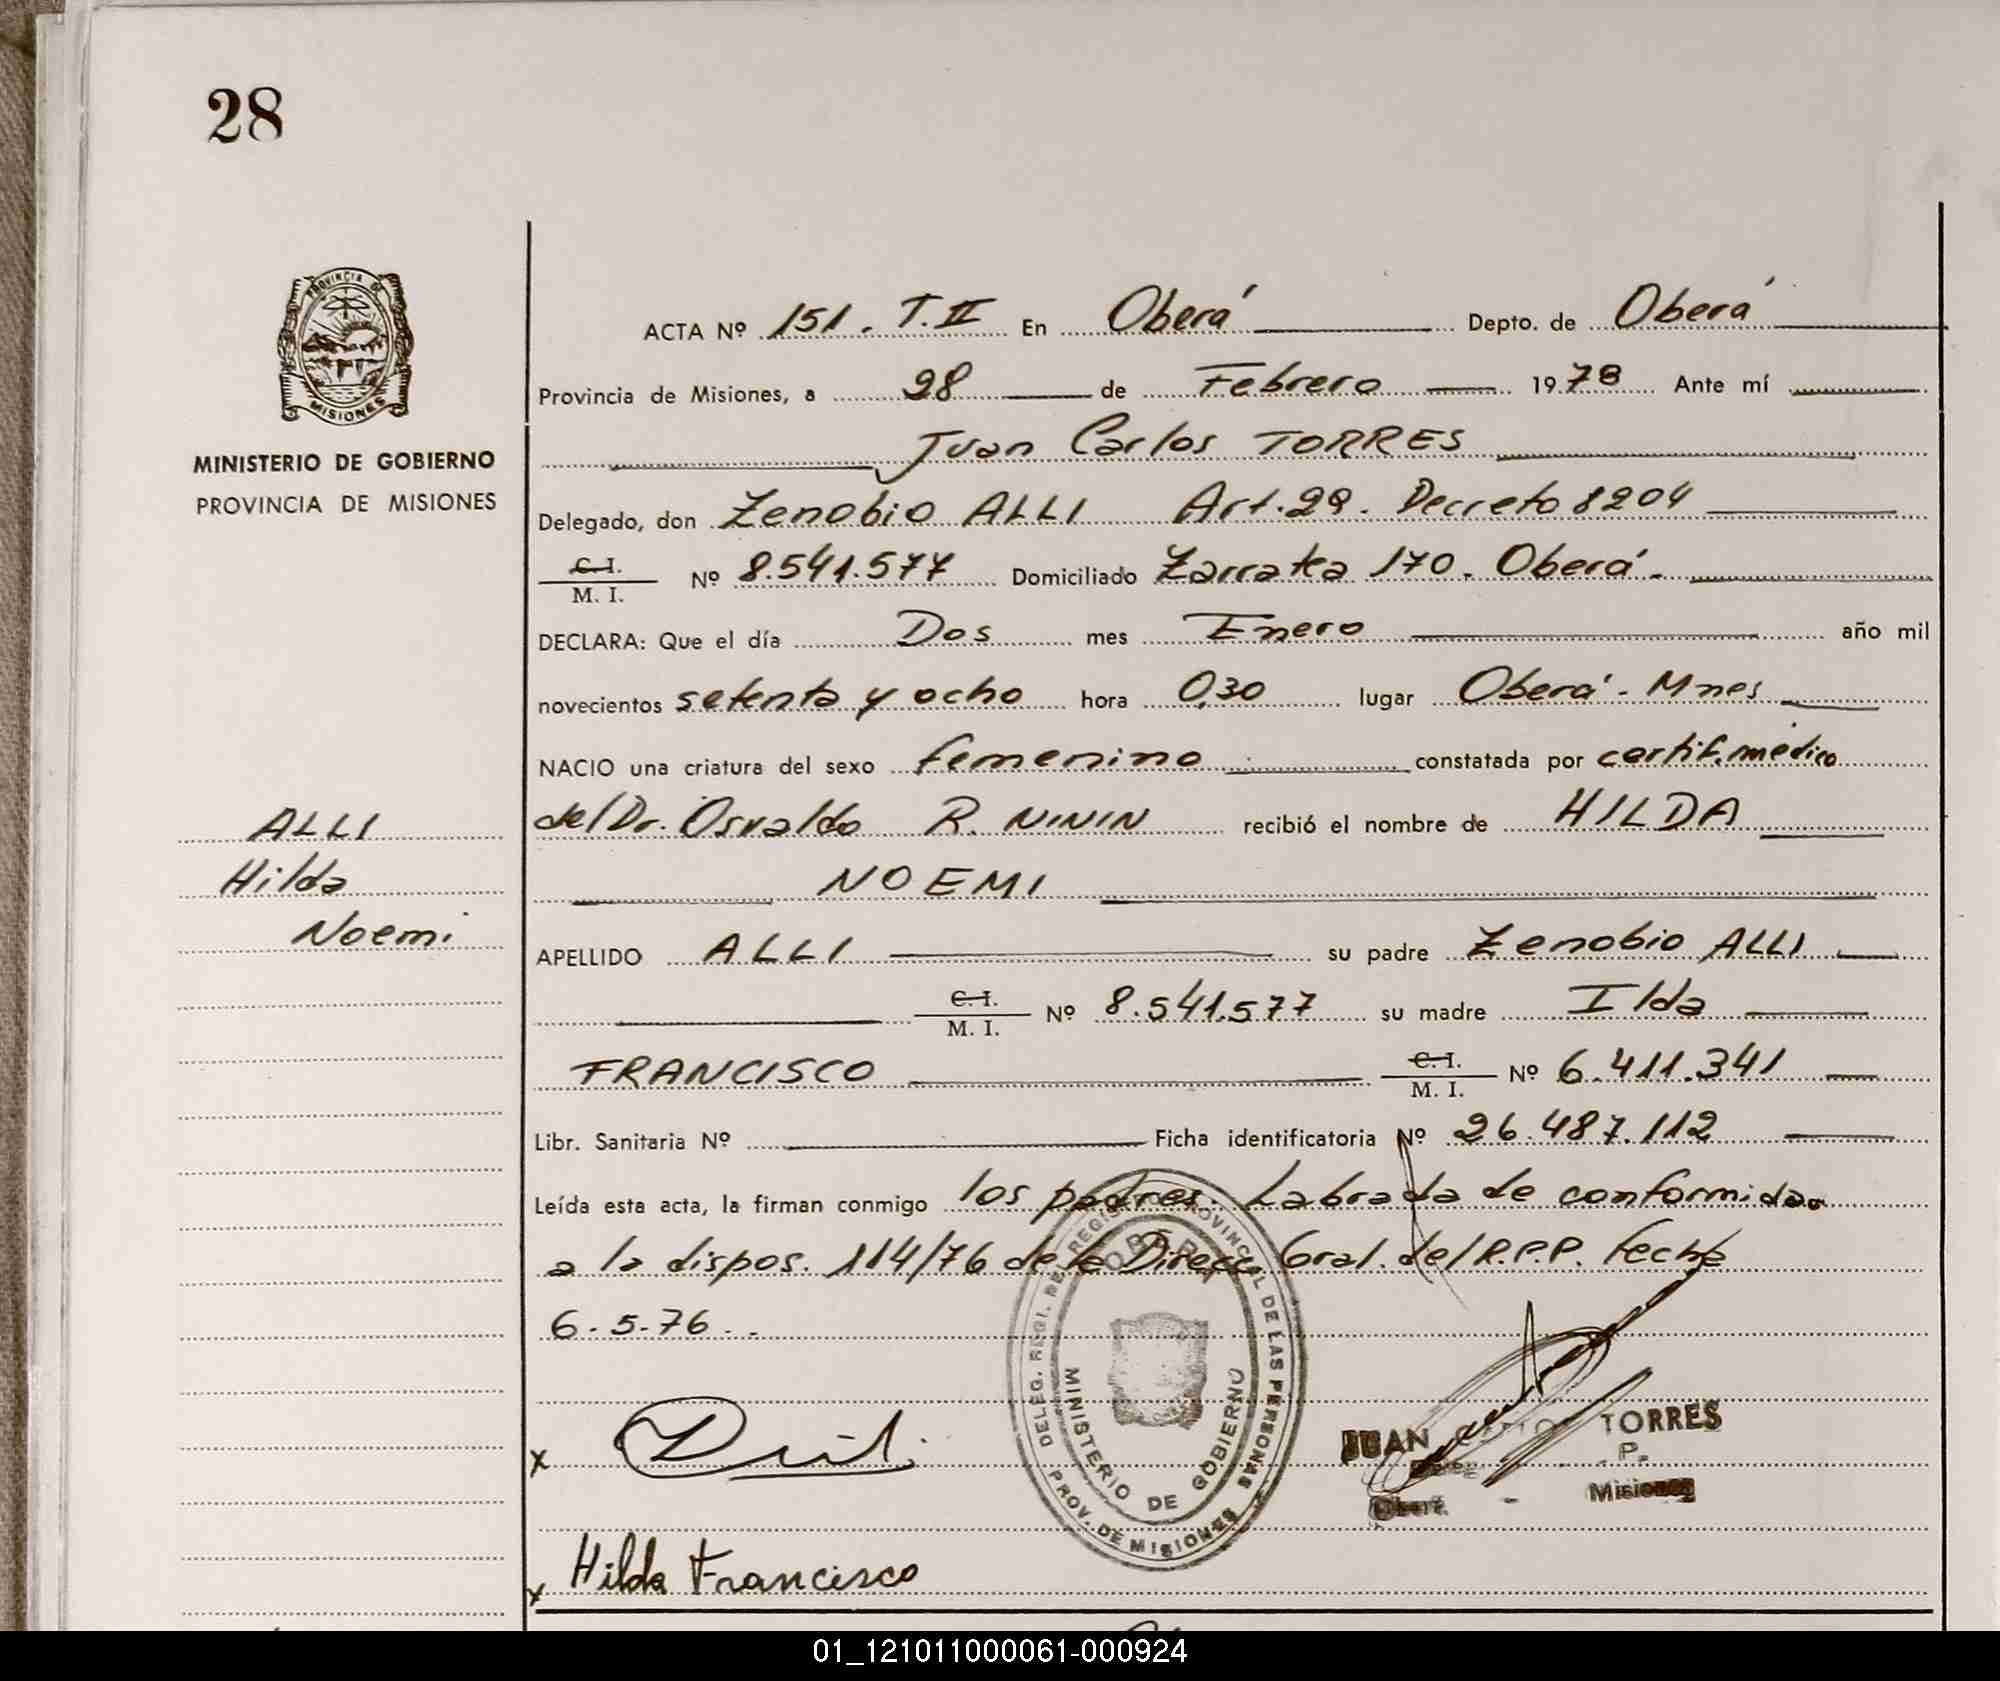 28
PROVINCIA DE
MISIONES
MINISTERIO DE GOBIERNO
PROVINCIA DE MISIONES
ALLI
Hilda
Noemi
ACTA Nº 151. T. II En Oberá Depto. de Oberá
Provincia de Misiones, a 28 de Febrero 1978 Ante mí
Juan Carlos TORRES
Delegado, don Zenobio ALLI Art. 29. Decreto 8204
C. I. / M. I. Nº 8.541.577 Domiciliado Zarratea 170. Oberá.
DECLARA: Que el día Dos mes Enero año mil
novecientos setenta y ocho hora 0,30 lugar Oberá - Mnes
NACIO una criatura del sexo femenino constatada por certif. médico
del Dr. Osvaldo R. NININ recibió el nombre de HILDA
NOEMI
APELLIDO ALLI su padre Zenobio ALLI
C. I. / M. I. Nº 8.541.577 su madre Ilda
FRANCISCO C. I. / M. I. Nº 6.411.341
Libr. Sanitaria Nº Ficha identificatoria Nº 26.487.112
Leída esta acta, la firman conmigo los padres. Labrada de conformidad
a la dispos. 114/76 de la Direcc. Gral. del R.P.P. fecha
6-5-76.
DELEG. REGI. DEL REGISTRO PROVINCIAL DE LAS PERSONAS
OBERA
MINISTERIO DE GOBIERNO
PROV. DE MISIONES
JUAN TORRES
P.
Misiones
x
x Hilda Francisco
01_121011000061-000924